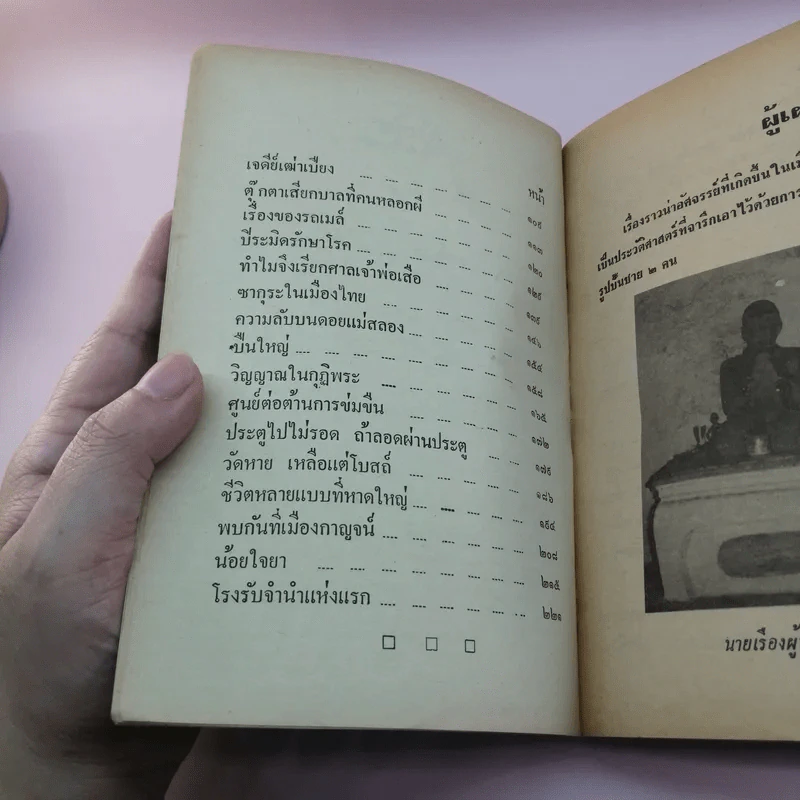 หน้า
เจดีย์เฒ่าเบี้ยง .... .... .... .... .... .... ๑๐๕
ตุ๊กตาเสียกบาลที่คนหลอกผี .... .... .... .... ๑๑๓
เรื่องของรถเมล์ .... .... .... .... .... .... ๑๒๐
ปีระมิดรักษาโรค .... .... .... .... .... .... ๑๒๕
ทำไมจึงเรียกศาลเจ้าพ่อเสือ .... .... .... .... ๑๓๕
ซากุระในเมืองไทย .... .... .... .... .... ๑๔๖
ความลับบนดอยแม่สลอง .... .... .... .... ๑๕๔
ปืนใหญ่ .... .... .... .... .... .... .... ๑๕๘
วิญญาณในกุฏิพระ .... .... .... .... .... ๑๖๕
ศูนย์ต่อต้านการข่มขืน .... .... .... .... .... ๑๗๒
ประตูไปไม่รอด ถ้าลอดผ่านประตู .... .... .... ๑๗๙
วัดหาย เหลือแต่โบสถ์ .... .... .... .... .... ๑๘๖
ชีวิตหลายแบบที่หาดใหญ่ .... .... .... .... .... ๑๙๔
พบกันที่เมืองกาญจน์ .... .... .... .... .... .... ๒๐๘
น้อยใจยา .... .... .... .... .... .... .... ๒๑๕
โรงรับจำนำแห่งแรก .... .... .... .... .... .... ๒๒๑
เรื่องราวน่าอัศจรรย์ที่เกิดขึ้นใน
เป็นประวัติศาสตร์ที่จารึกเอาไว้ด้วยการ
รูปปั้นชาย ๒ คน
นายเรือง